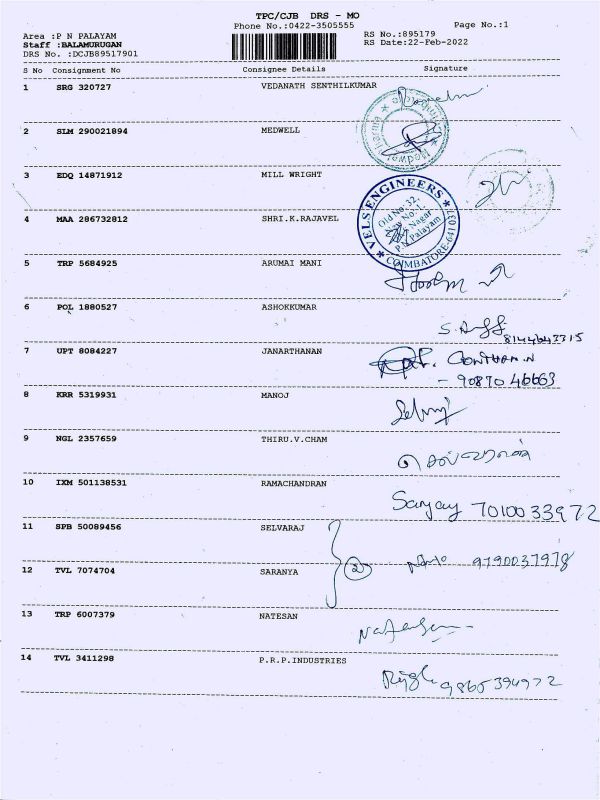 TPC/CJB DRS - MO
Phone No.:0422-3505555
Page No.:1
Area :P N PALAYAM
RS No.:895179
Staff :BALAMURUGAN
RS Date:22-Feb-2022
DRS No. :DCJB89517901
S No Consignment No Consignee Details Signature
1 SRG 320727 VEDANATH SENTHILKUMAR
2 SLM 290021894 MEDWELL
3 EDQ 14871912 MILL WRIGHT
VELS ENGINEERS
Old No.32,
New No.1,
Nagar
P.N.Palayam
COIMBATORE-641 037
4 MAA 286732812 SHRI.K.RAJAVEL
5 TRP 5684925 ARUMAI MANI
6 POL 1880527 ASHOKKUMAR
7 UPT 8084227 JANARTHANAN
- 90870 46663
8 KRR 5319931 MANOJ
9 NGL 2357659 THIRU.V.CHAM
10 IXM 501138531 RAMACHANDRAN
Sanjay 7010033972
11 SPB 50089456 SELVARAJ
2 9790037978
12 TVL 7074704 SARANYA
13 TRP 6007379 NATESAN
14 TVL 3411298 P.R.P.INDUSTRIES